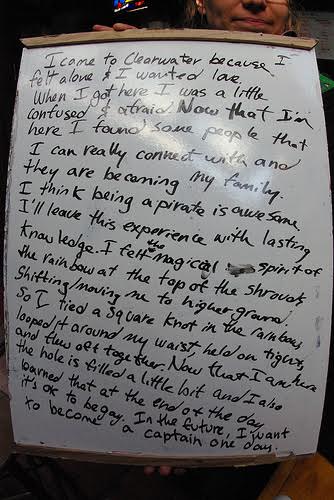 I came to Clearwater because I
felt alone & I wanted love.
When I got here I was a little
confused & afraid. Now that I'm
here I found some people that
I can really connect with and
they are becoming my family.
I think being a pirate is awesome
I'll leave this experience with lasting
knowledge. I felt the magical spirit of
the rainbow at the top of the shrouds
shifting/moving me to higher ground.
So I tied a square knot in the rainbow,
looped it around my waist, held on tight,
and flew off together. Now that I am here
the hole is filled a little bit and I also
learned that at the end of the day
it's ok to be gay. In the future, I want
to become a captain one day.